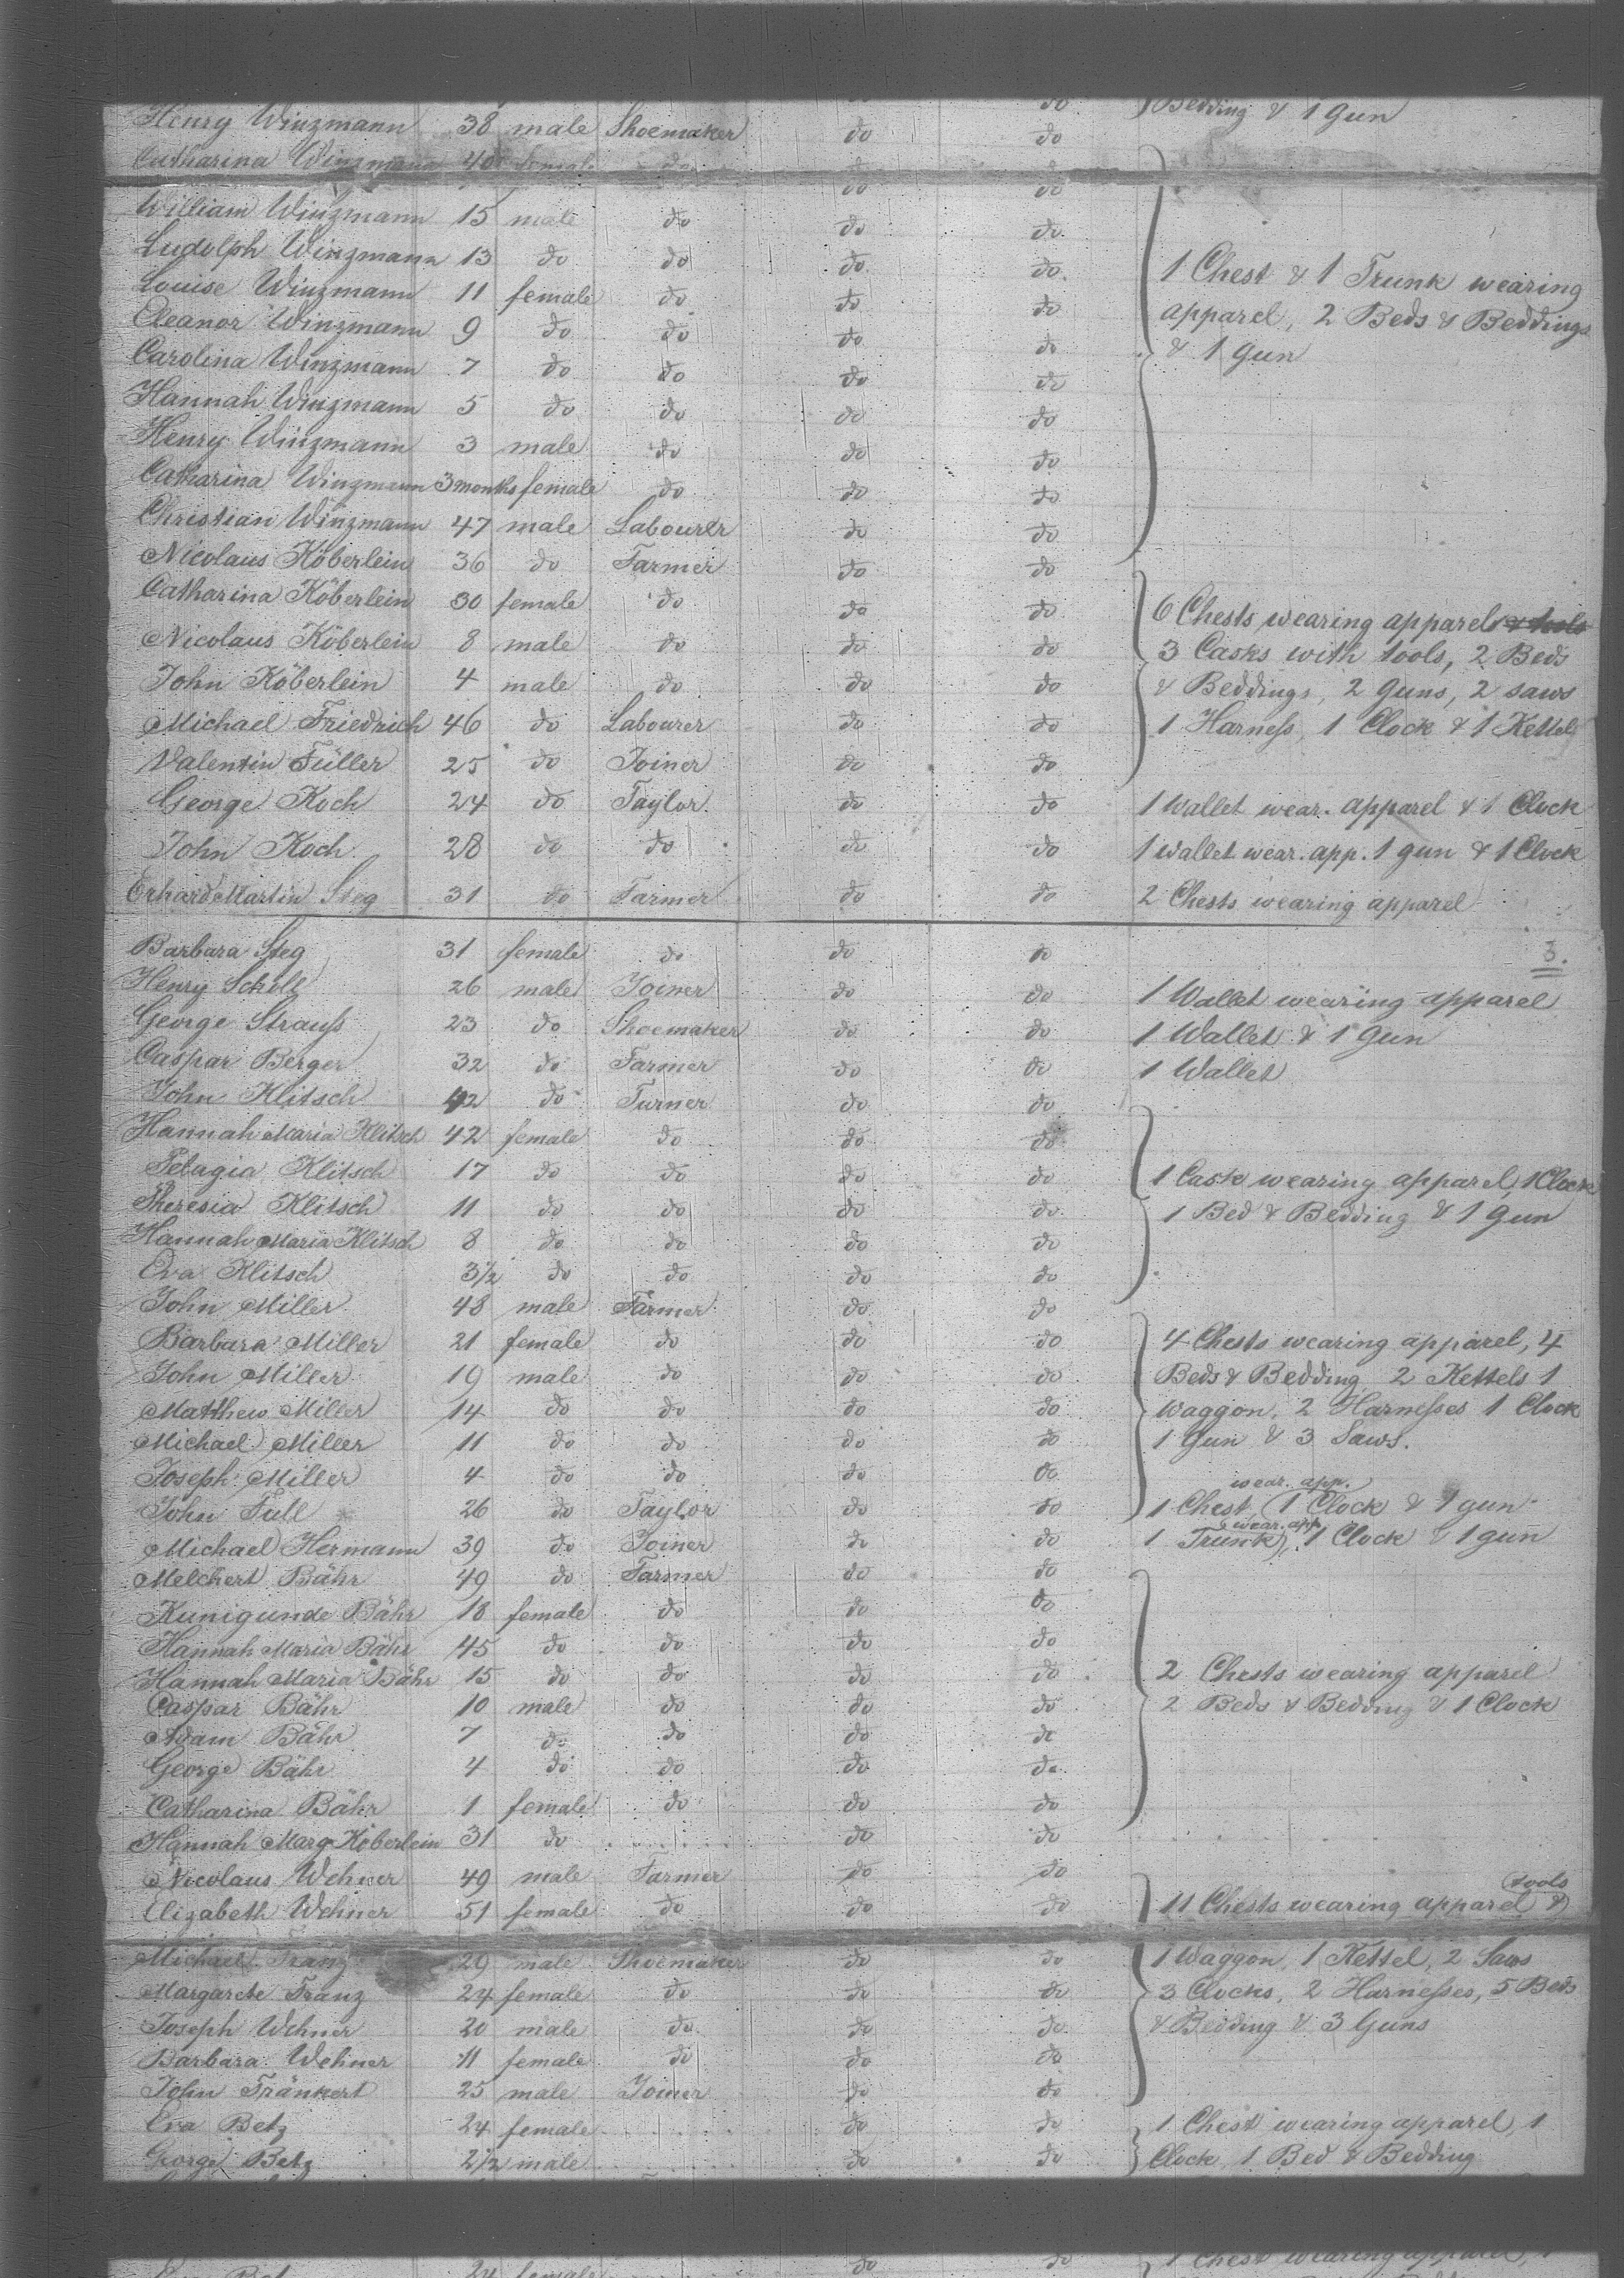 do do Bedding & 1 Gun
Henry Winzmann 38 male Shoemaker do do
Catharina Winzmann 40 female do do do
William Winzmann 15 male do do do
Ludolph Winzmann 13 do do do do
Louise Winzmann 11 female do do do 1 Chest & 1 Trunk wearing
Eleanor Winzmann 9 do do do do apparel, 2 Beds & Beddings
Carolina Winzmann 7 do do do do & 1 Gun
Hannah Winzmann 5 do do do do
Henry Winzmann 3 male do do do
Catharina Winzmann 3 months female do do do
Christian Winzmann 47 male Labourer do do
Nicolaus Köberlein 36 do Farmer do do
Catharina Köberlein 30 female do do do 6 Chests wearing apparel & tools
Nicolaus Köberlein 8 male do do do 3 Casks with tools, 2 Beds
John Köberlein 4 male do do do & Beddings, 2 Guns, 2 saws
Michael Friedrich 46 do Labourer do do 1 Harness, 1 Clock & 1 Kettel
Valentin Füller 25 do Joiner do do
George Koch 24 do Taylor do do 1 Wallet wear. apparel & 1 Clock
John Koch 28 do do do do 1 Wallet wear. app. 1 gun & 1 Clock
Erhard Martin Steg 31 do Farmer do do 2 Chests wearing apparel
Barbara Steg 31 female do do do 3.
Henry Scholl 26 male Joiner do do 1 Wallet wearing apparel
George Strauss 23 do Shoemaker do do 1 Wallet & 1 Gun
Caspar Berger 32 do Farmer do do 1 Wallet
John Klitsch 42 do Turner do do
Hannah Maria Klitsch 42 female do do do
Pelagia Klitsch 17 do do do do 1 Cask wearing apparel, 1 Clock
Theresia Klitsch 11 do do do do 1 Bed & Bedding & 1 Gun
Hannah Maria Klitsch 8 do do do do
Eva Klitsch 3½ do do do do
John Miller 48 male Farmer do do
Barbara Miller 21 female do do do 4 Chests wearing apparel, 4
John Miller 19 male do do do Beds & Bedding 2 Kettels 1
Matthew Miller 14 do do do do Waggon, 2 Harnesses 1 Clock
Michael Miller 11 do do do do 1 Gun & 3 Saws.
Joseph Miller 4 do do do do wear. app.
John Full 26 do Taylor do do 1 Chest, 1 Clock & 1 gun
wear. app.
Michael Hermann 39 do Joiner do do 1 Trunk, 1 Clock & 1 gun
Melchert Bähr 49 do Farmer do do
Kunigunde Bähr 18 female do do do
Hannah Maria Bähr 45 do do do do
Hannah Maria Bähr 15 do do do do 2 Chests wearing apparel
Caspar Bähr 10 male do do do 2 Beds & Bedding & 1 Clock
Adam Bähr 7 do do do do
George Bähr 4 do do do do
Catharina Bähr 1 female do do do
Hannah Marg. Köberlein 31 do do do
Nicolaus Wehner 49 male Farmer do do tools
Elizabeth Wehner 51 female do do do 11 Chests wearing apparel &
Michael Franz 29 male Shoemaker do do 1 Waggon, 1 Kettel, 2 Saws
Margarete Franz 24 female do do do 3 Clocks, 2 Harnesses, 5 Beds
Joseph Wehner 20 male do do do & Bedding & 3 Guns
Barbara Wehner 11 female do do do
John Fränkert 25 male Joiner do do
Eva Betz 24 female do do 1 Chest wearing apparel, 1
George Betz 2½ male do do Clock, 1 Bed & Bedding
24 female do do 1 Chest wearing apparel, 1